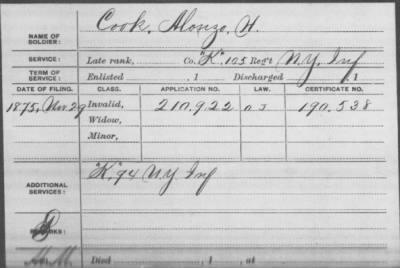 Cook, Alonzo, H.
NAME OF SOLDIER:
SERVICE: Late rank, Co. "K", 105 Reg't N.Y. Inf
TERM OF SERVICE: Enlisted , 1 Discharged , 1
DATE OF FILING. CLASS. APPLICATION NO. LAW. CERTIFICATE NO.
1875, Nov. 29 Invalid, 210,922 190.538
Widow,
Minor,
ADDITIONAL SERVICES: "K", 94 N.Y. Inf
REMARKS:
Died , 1 , at